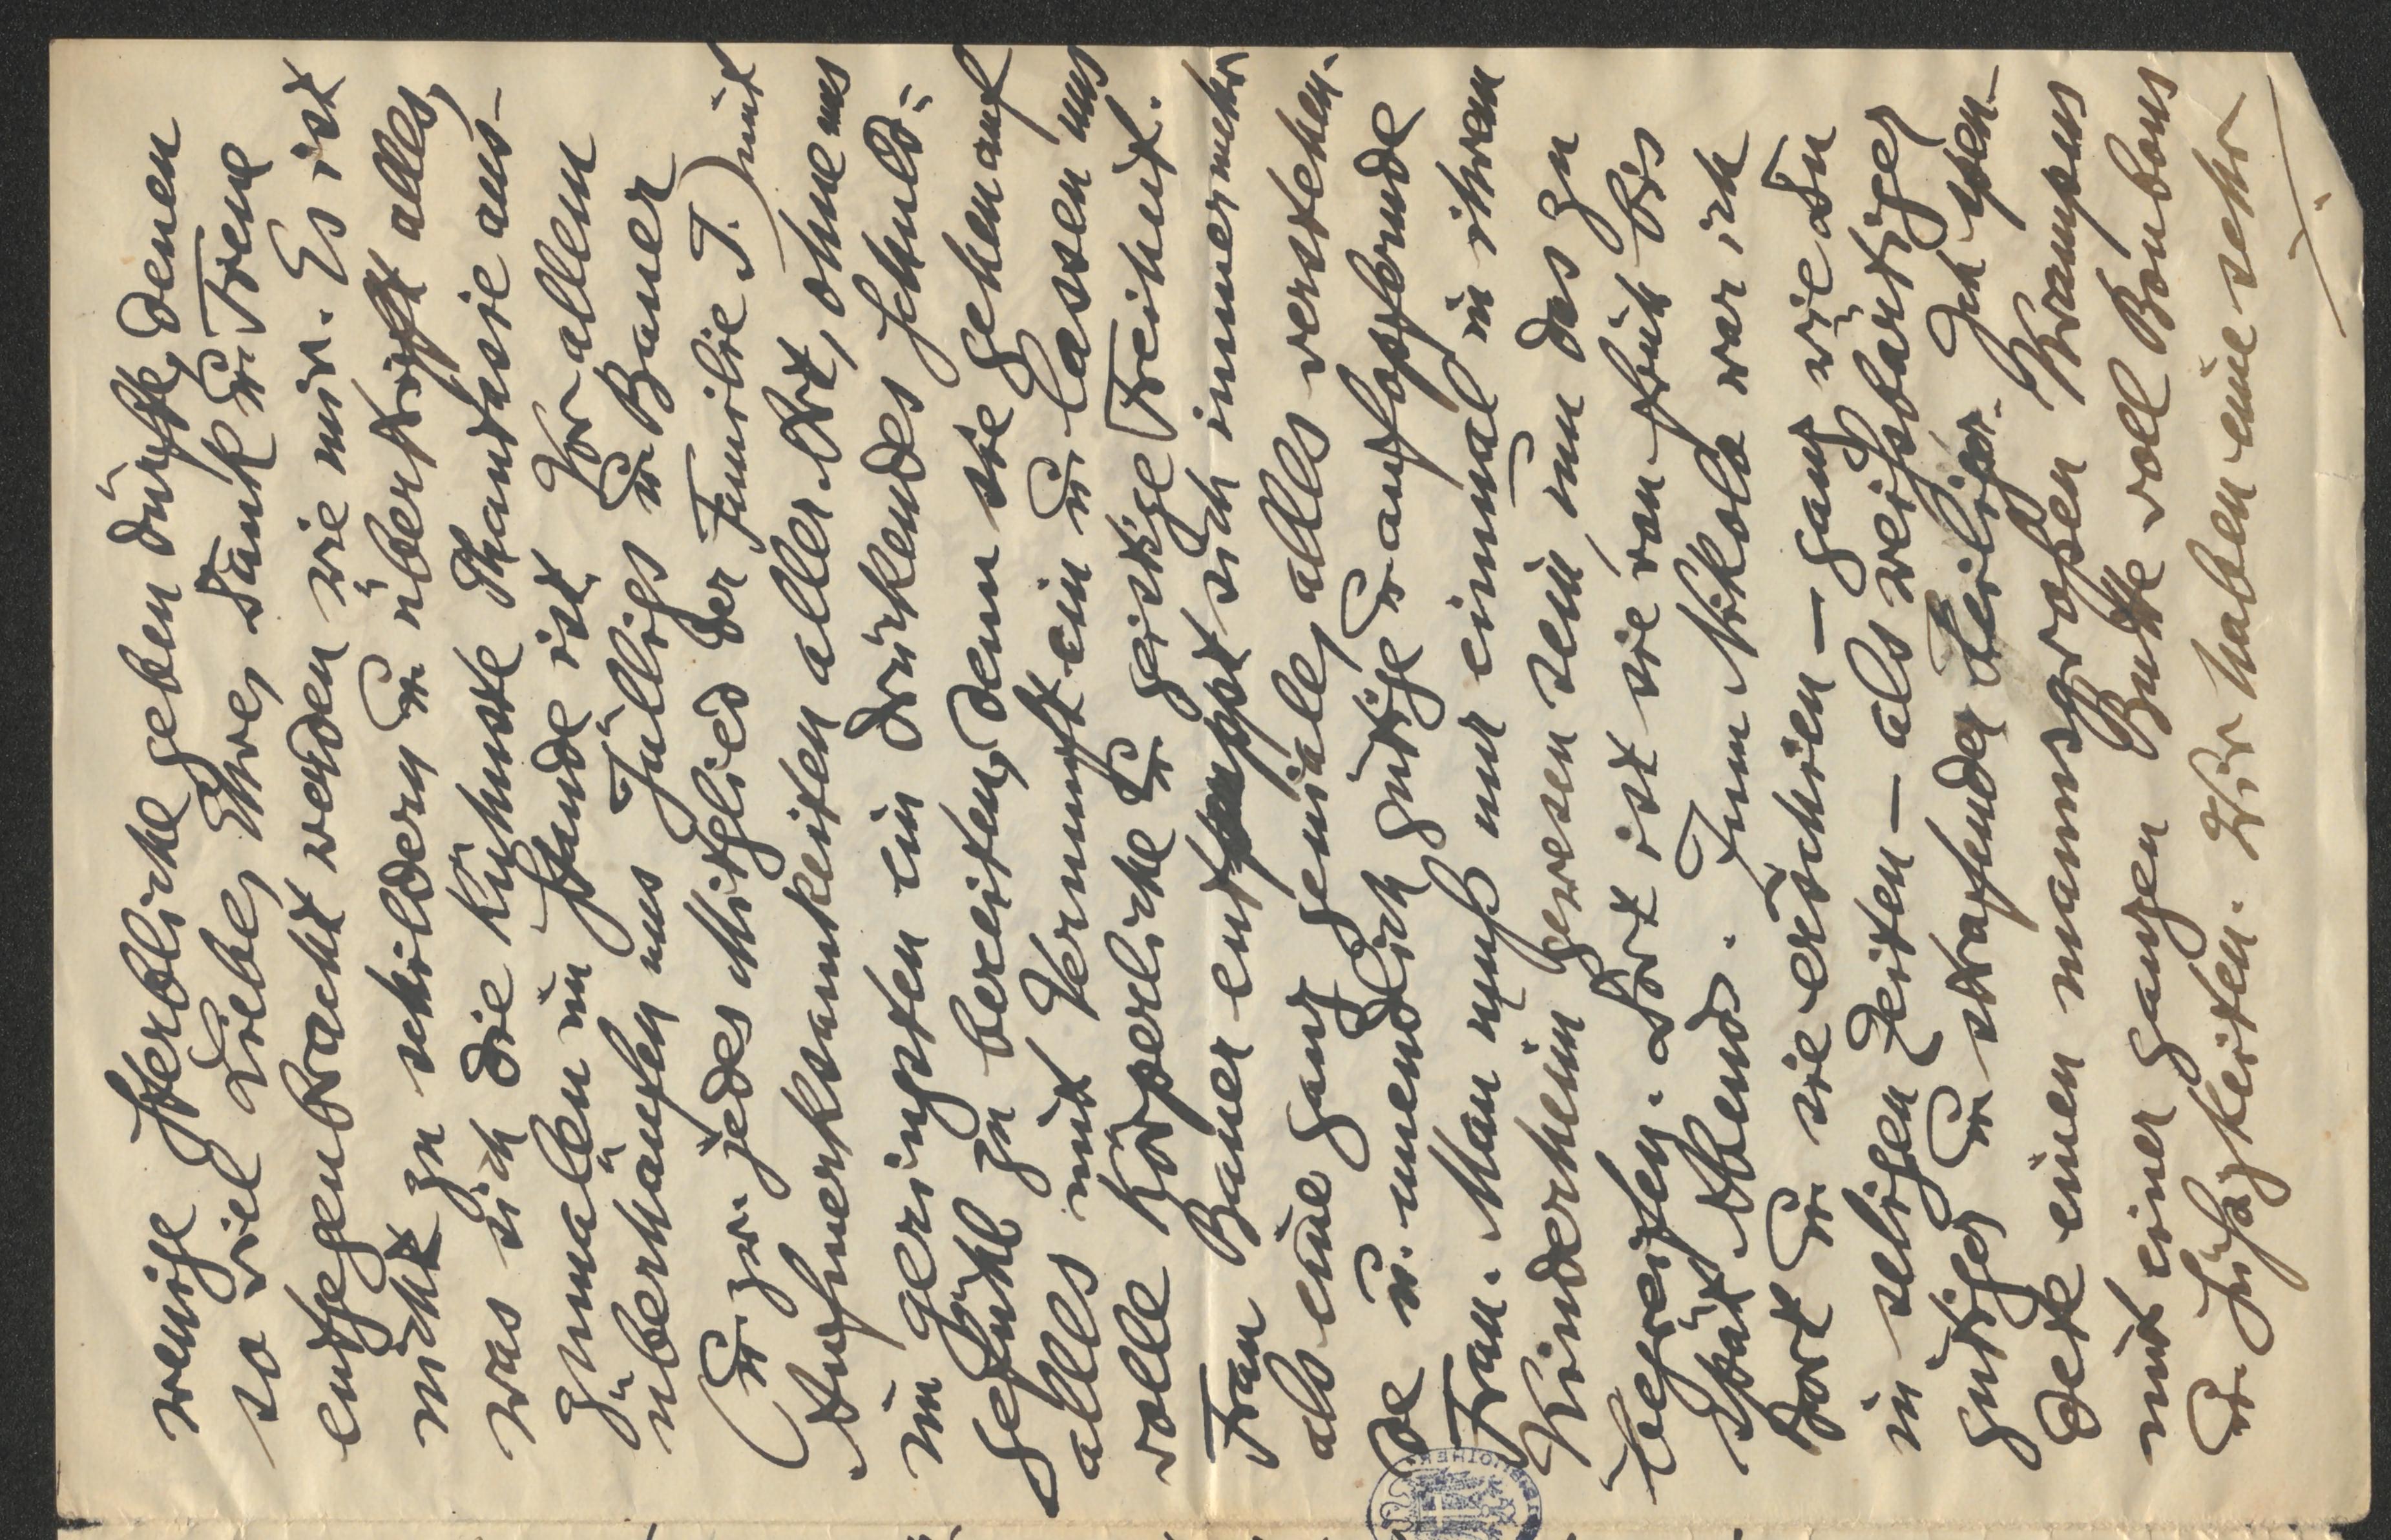 wenige Sterbliche geben dürfte, denen
so viel Liebe, Ehre, Dank u. Treue
entgegenbracht werden wie mir. Es ist
nicht zu schildern u. übertrifft alles,
was sich die kühnste Phantasie aus-
zumalen im Stande ist. Vor allem
überhäufen uns Jülligs u. Bauer
(u. zw. jedes Mitglied der Familie J.) mit
Aufmerksamkeiten aller Art, ohne uns
im geringsten ein drückendes Schuld-
gefühl zu bereiten, denn sie gehen auf
alles mit Vernunft ein u. lassen uns
volle körperliche u. geistige Freiheit.
Frau Bauer entpuppt sich immer mehr
als eine ganz geniale, alles verstehen-
de u. unendlich gütige u. aufopfernde
Frau. Man muß nur einmal in ihrem
Kinderheim gewesen sein, um das zu
begreifen. Dort ist sie von früh bis
spät Abends. Zum Nikolo war ich
dort u. sie erschien – ganz wie Du
in seligen Zeiten – als weißbärtiger
gütiger u. strafender Heiliger. Ich spen-
dete einen mannsgroßen Krampus
mit einer ganzen Butte voll Bonbons
u. Süßigkeiten. Wir haben eine sehr